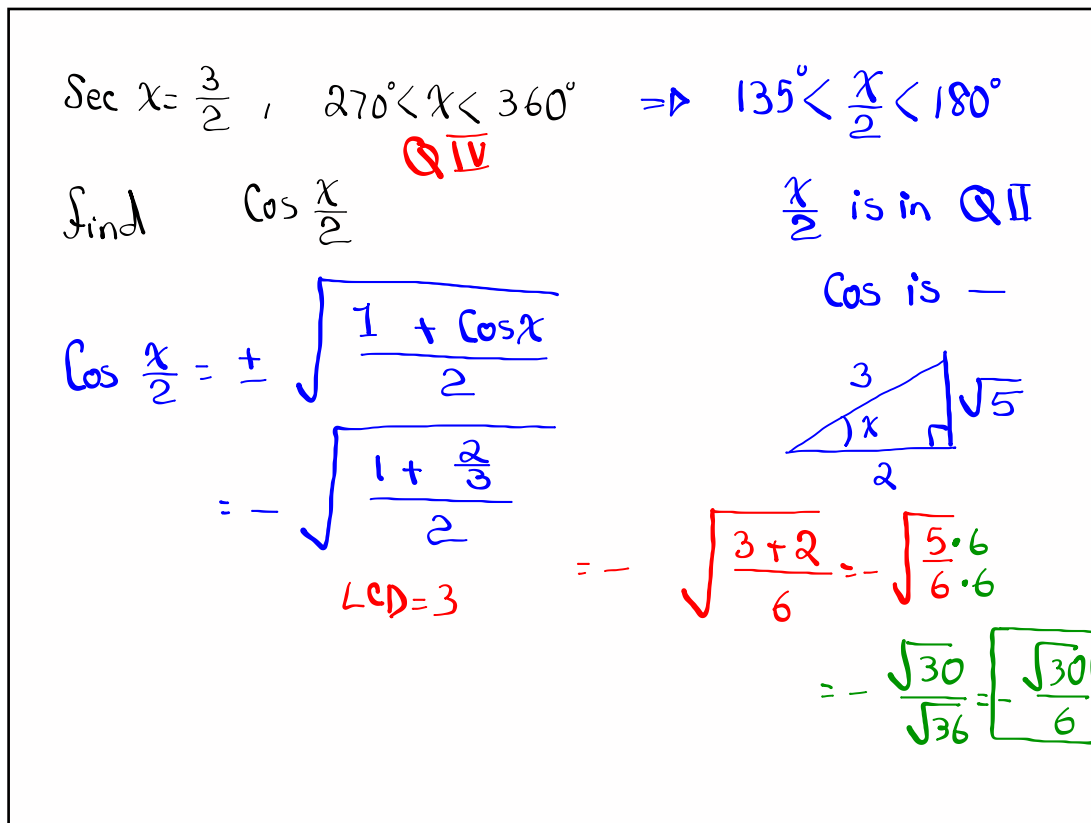 Sec x = 3/2 , 270° < x < 360° ⇒ 135° < x/2 < 180°
QIV
find Cos x/2
x/2 is in QII
Cos is —
Cos x/2 = ± √((1 + Cosx)/2)
3 √5 x 2
= - √((1 + 2/3)/2)
LCD = 3
= - √((3+2)/6) = - √((5·6)/(6·6))
= - √30/√36 = - √30/6